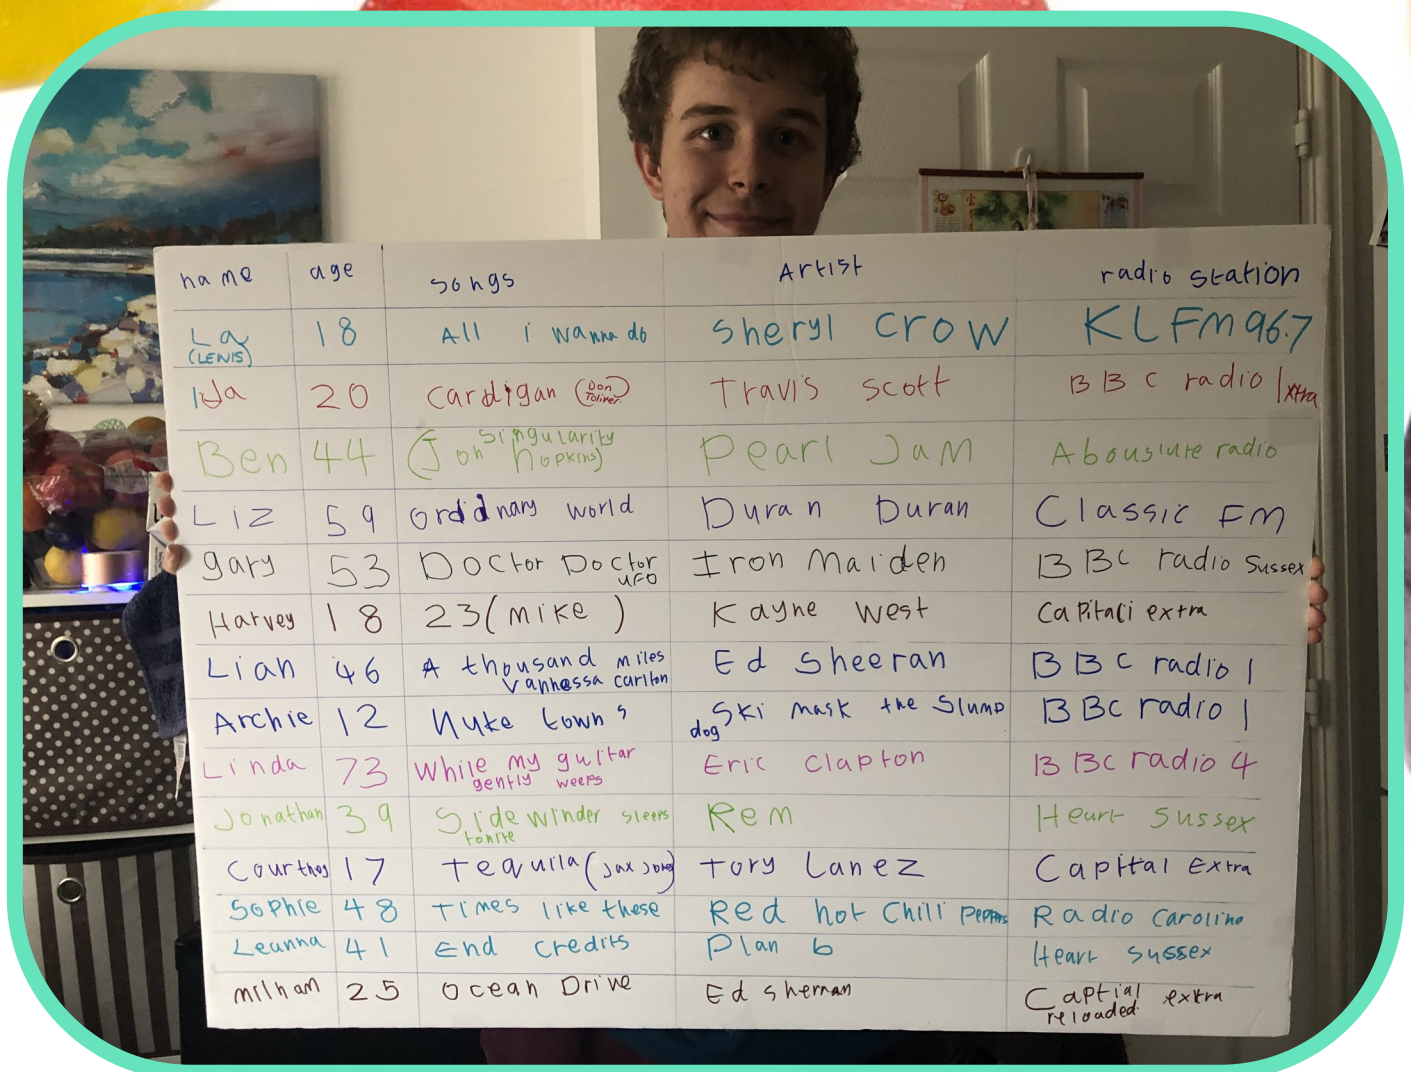 name age songs Artist radio station
La (LEWIS) 18 All i wanna do Sheryl Crow KLFM 96.7
Ida 20 Cardigan (Don Toliver) Travis Scott BBC radio 1xtra
Ben 44 Singularity (Jon hopkins) Pearl Jam Abouslute radio
Liz 59 Ordidnary world Duran Duran Classic FM
gary 53 Doctor Doctor UFO Iron Maiden BBC radio Sussex
Harvey 18 23 (mike ) Kayne West Capitacl extra
Lian 46 A thousand miles vannessa carlton Ed Sheeran BBC radio 1
Archie 12 Nuke towns Ski mask the Slump dog BBC radio 1
Linda 73 While my guitar gently weeps Eric Clapton BBC radio 4
Jonathan 39 Sidewinder sleeps tonite Rem Heart Sussex
Courtney 17 Tequila (Jax Jones) Tory Lanez Capital Extra
Sophie 48 Times like these Red hot Chili Peppers Radio Caroline
Leanna 41 End Credits Plan b Heart Sussex
25 Ocean Drive Ed Captial extra reloaded